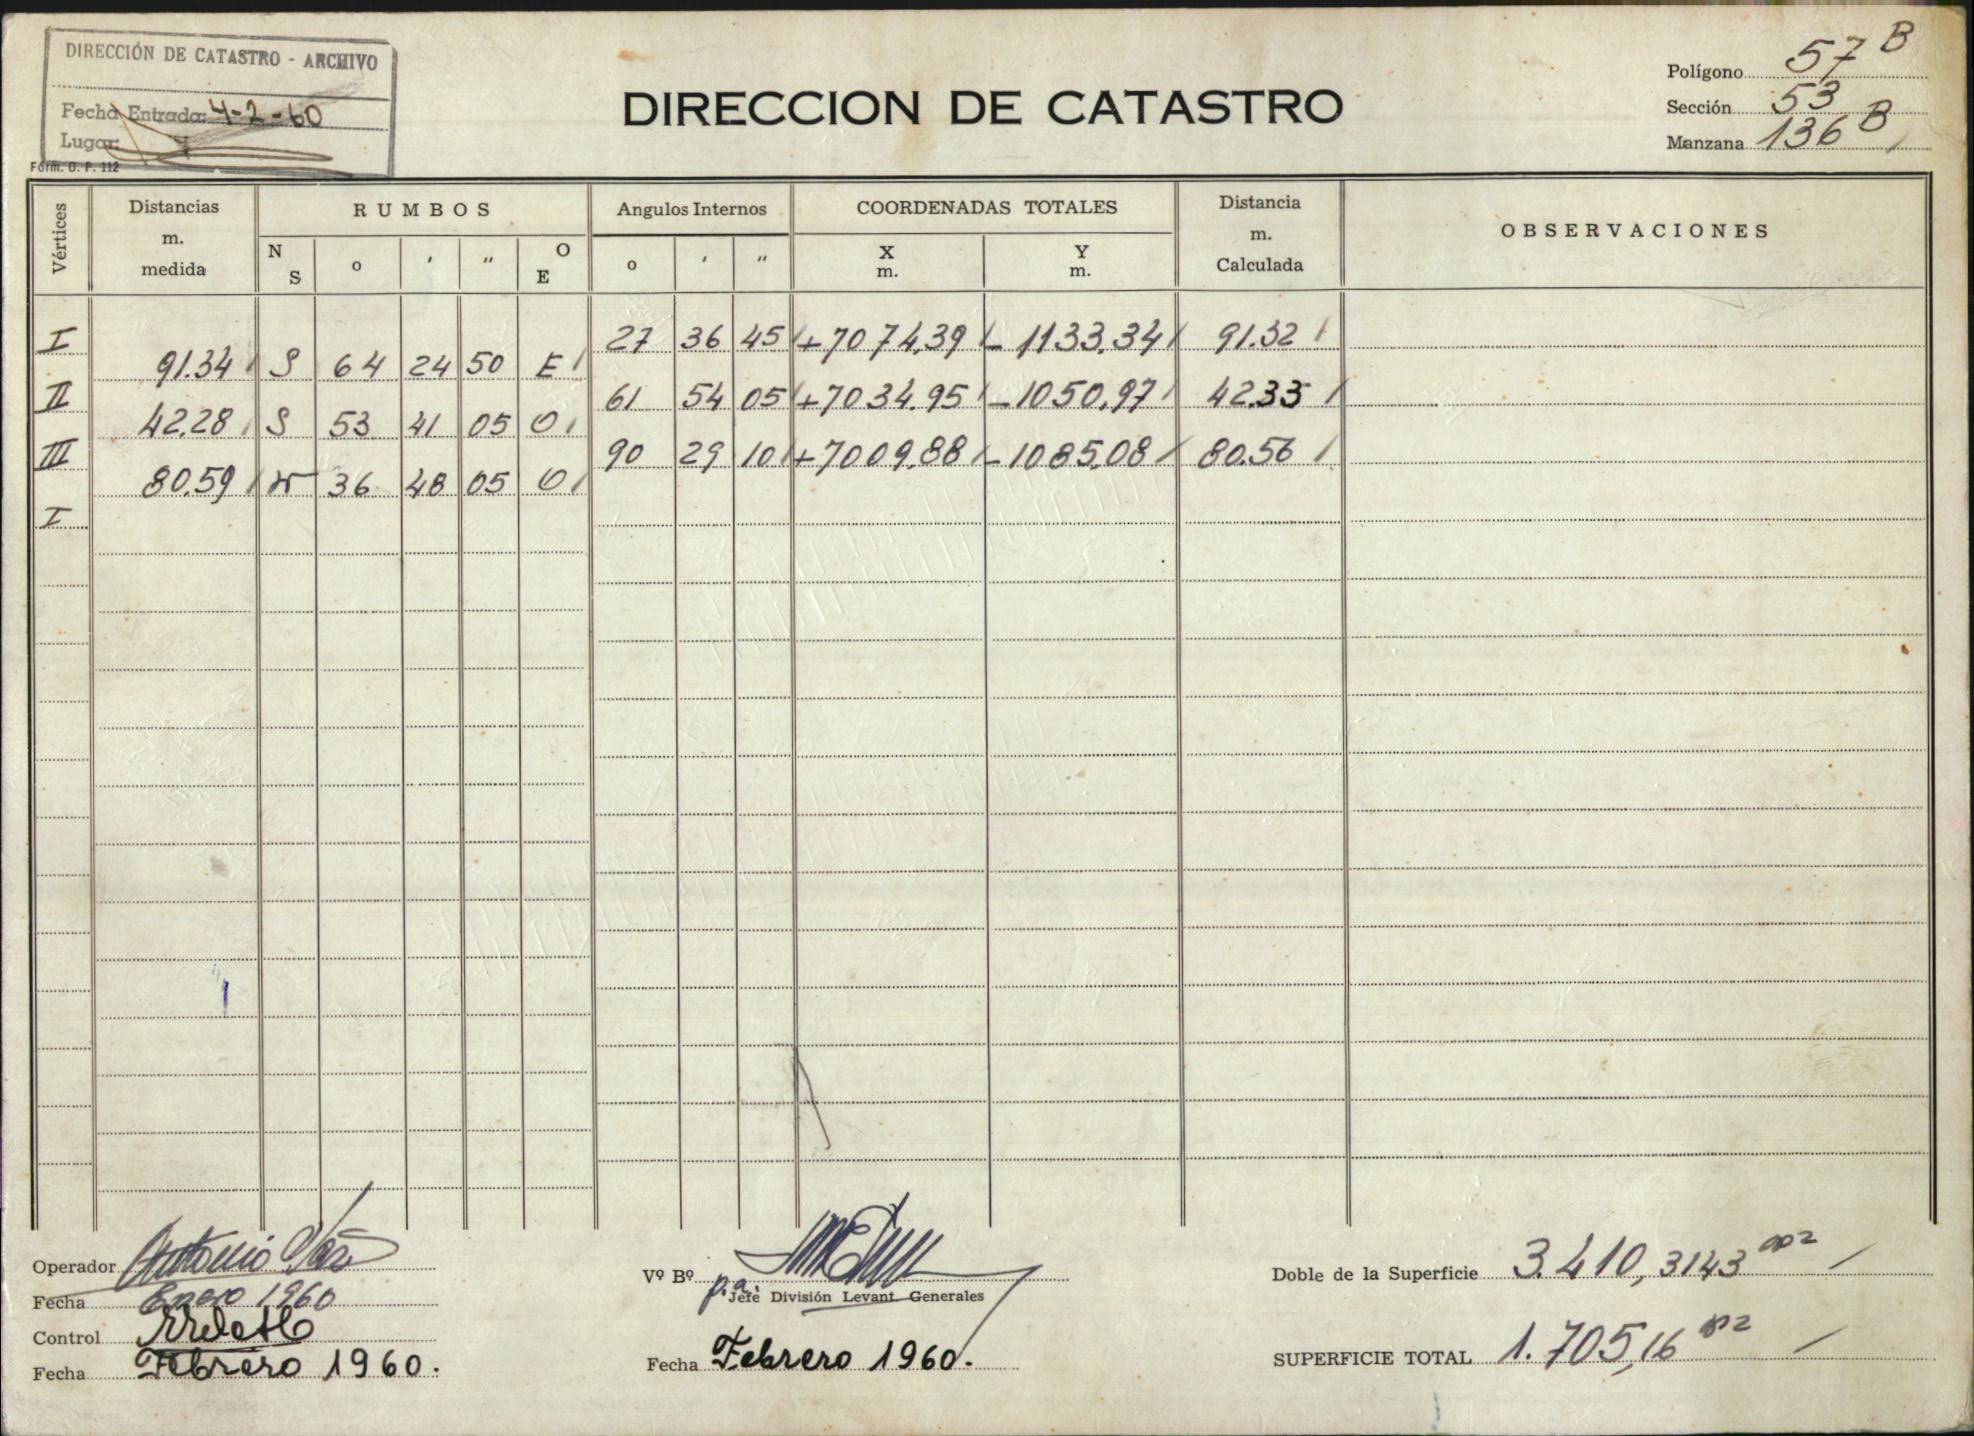 DIRECCIÓN DE CATASTRO - ARCHIVO
Fecha Entrada: 4-2-60
Lugar:
Form. O. P. 112
DIRECCION DE CATASTRO
Polígono 57 B
Sección 53
Manzana 136 B
Vértices Distancias m. medida RUMBOS Angulos Internos COORDENADAS TOTALES Distancia m. Calculada OBSERVACIONES
N S o ' " O E o ' " X m. Y m.
I 27 36 45 +7074.39 -1133.34 91.32
91.34 S 64 24 50 E
II 61 54 05 +7034.95 -1050.97 42.33
42.28 S 53 41 05 O
III 90 29 10 +7009.88 -1085.08 80.56
80.59 N 36 48 05 O
I
Operador Antonio
Fecha Enero 1960
Control
Fecha Febrero 1960.
Vº Bº
p.a. Jefe División Levant Generales
Fecha Febrero 1960.
Doble de la Superficie 3.410,3143 m2
SUPERFICIE TOTAL 1.705,16 m2